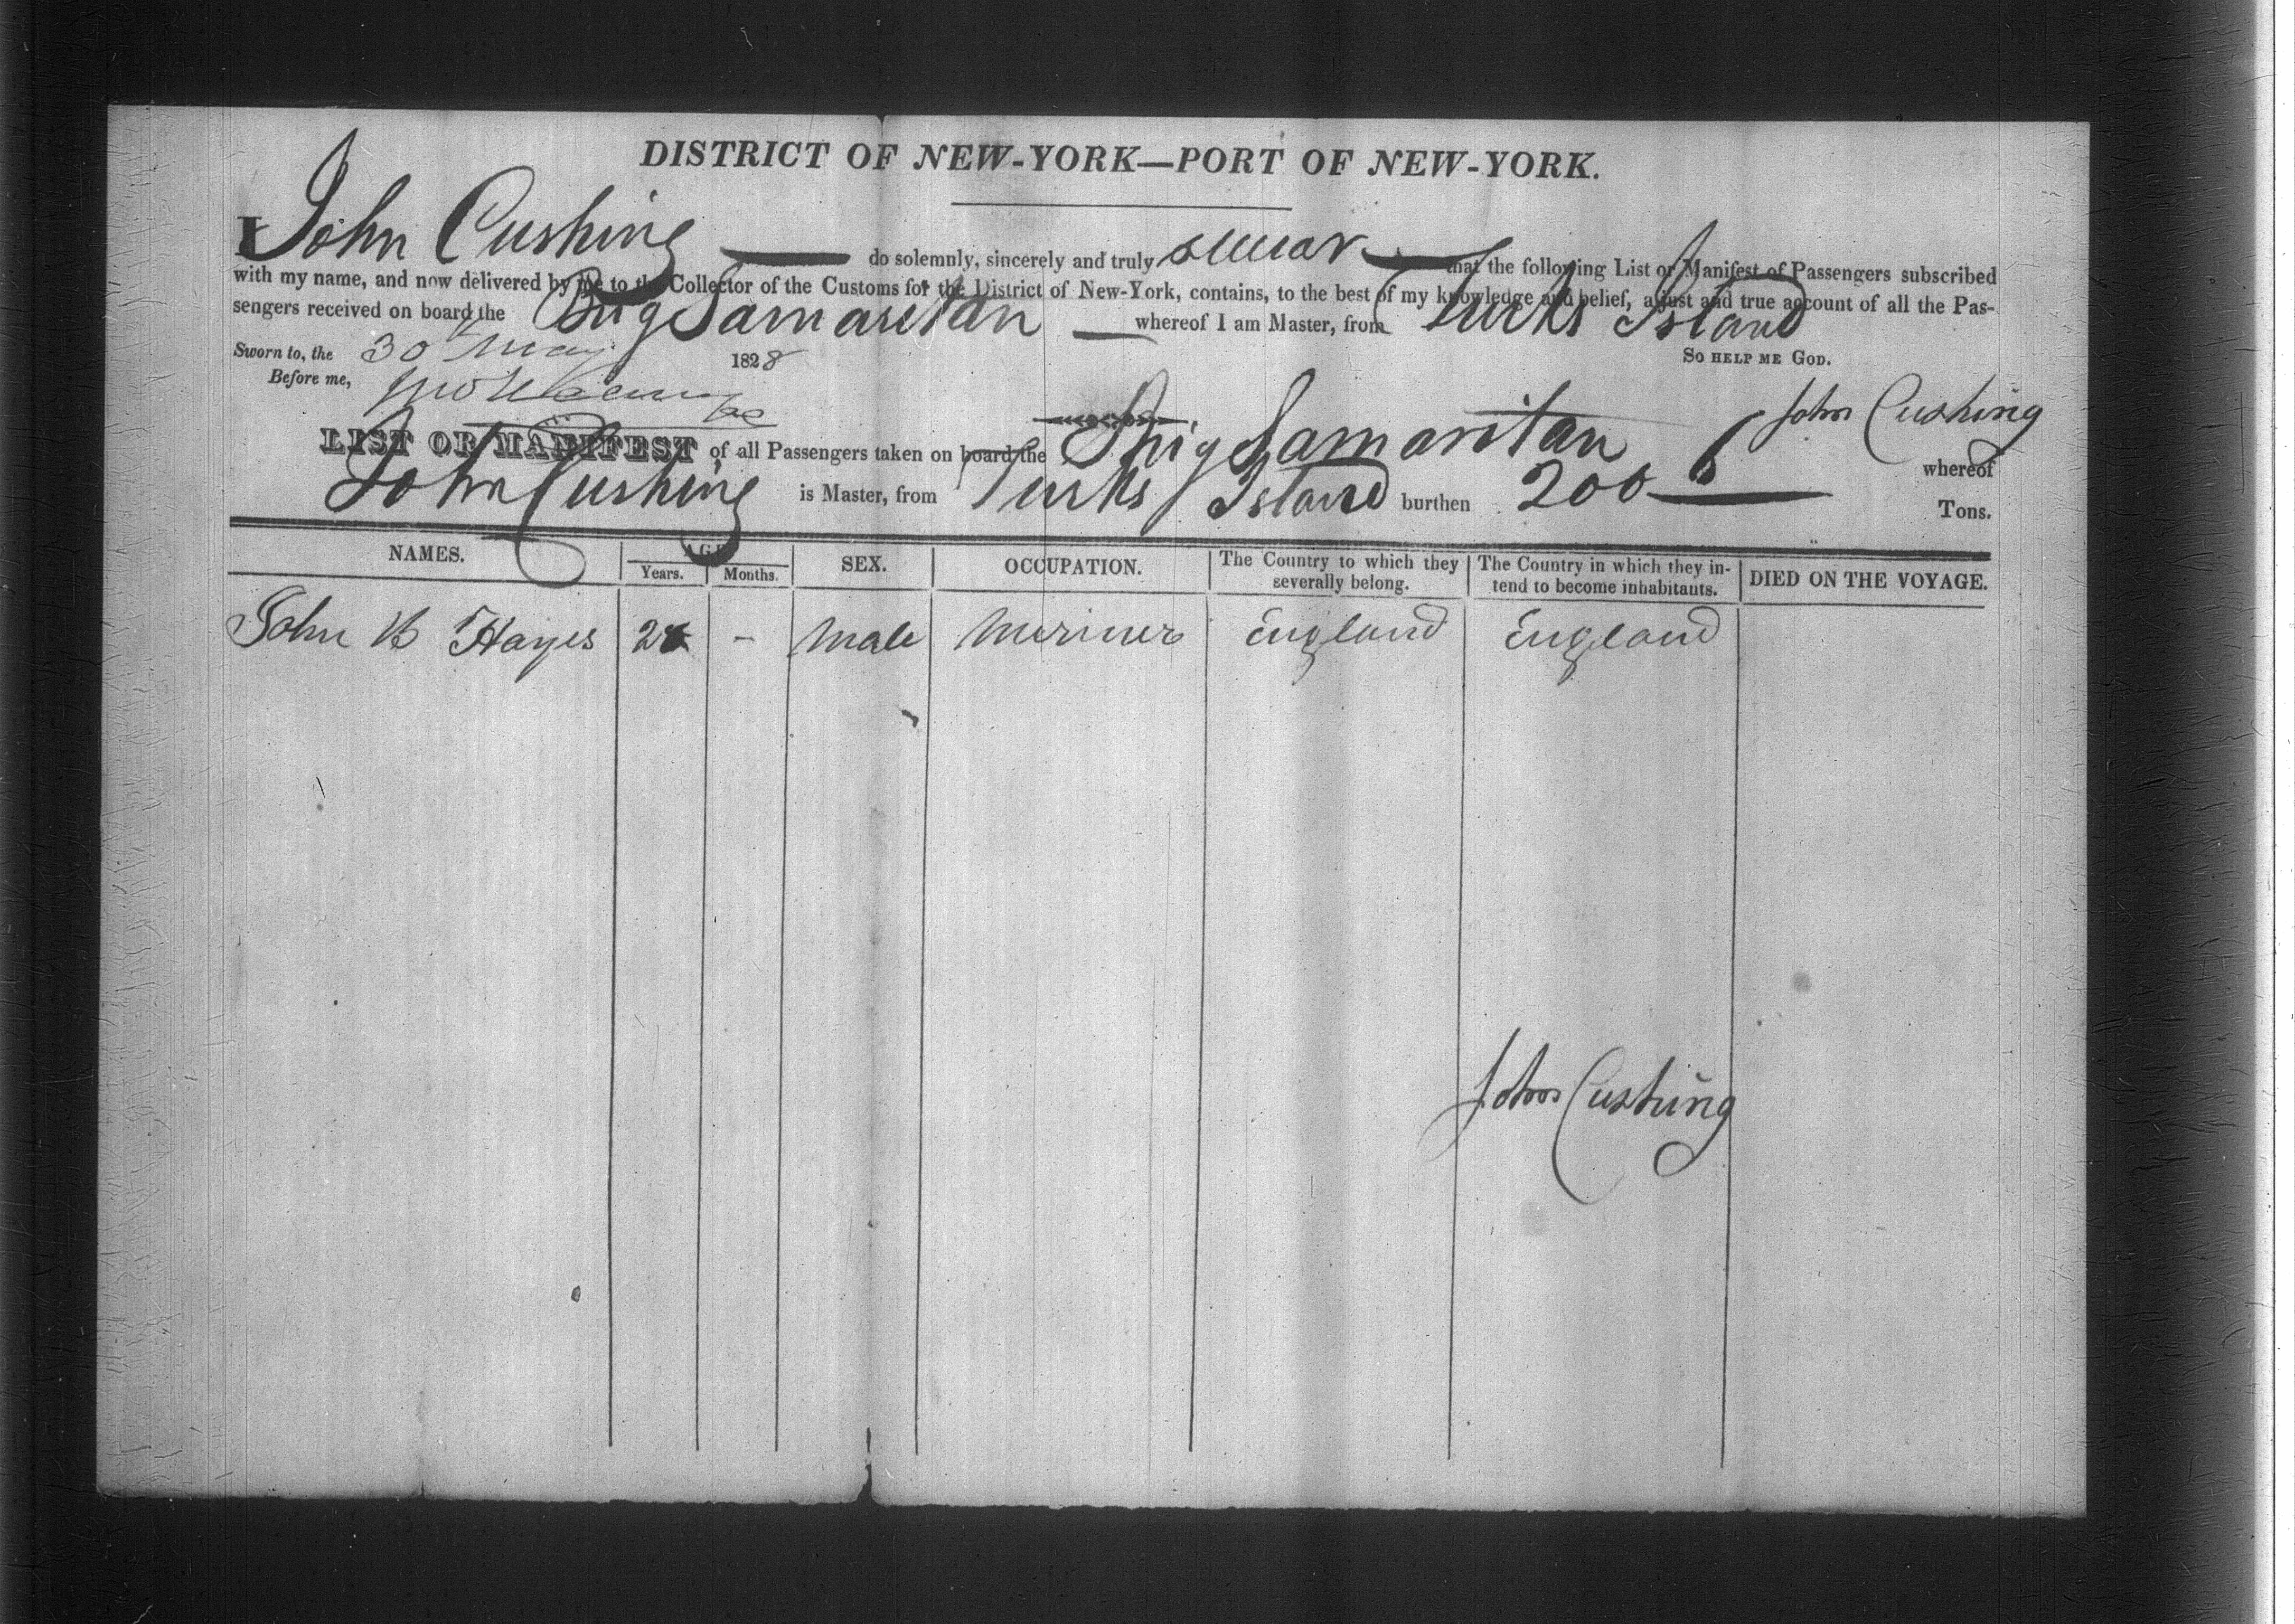 DISTRICT OF NEW-YORK—PORT OF NEW-YORK.
I John Cushing do solemnly, sincerely and truly swear that the following List or Manifest of Passengers subscribed
with my name, and now delivered by me to the Collector of the Customs for the District of New-York, contains, to the best of my knowledge and belief, a just and true account of all the Pas-
sengers received on board the Brig Samaritan whereof I am Master, from Turks Island
Sworn to, the 30 May 1828 So help me God.
Before me,
John Cushing
LIST OR MANIFEST of all Passengers taken on board the Brig Samaritan whereof
John Cushing is Master, from Turks Island burthen 200 Tons.
NAMES. AGE Years. Months. SEX. OCCUPATION. The Country to which they severally belong. The Country in which they in-tend to become inhabitants. DIED ON THE VOYAGE.
John B Hayes 28 - Male Meriner England England
John Cushing